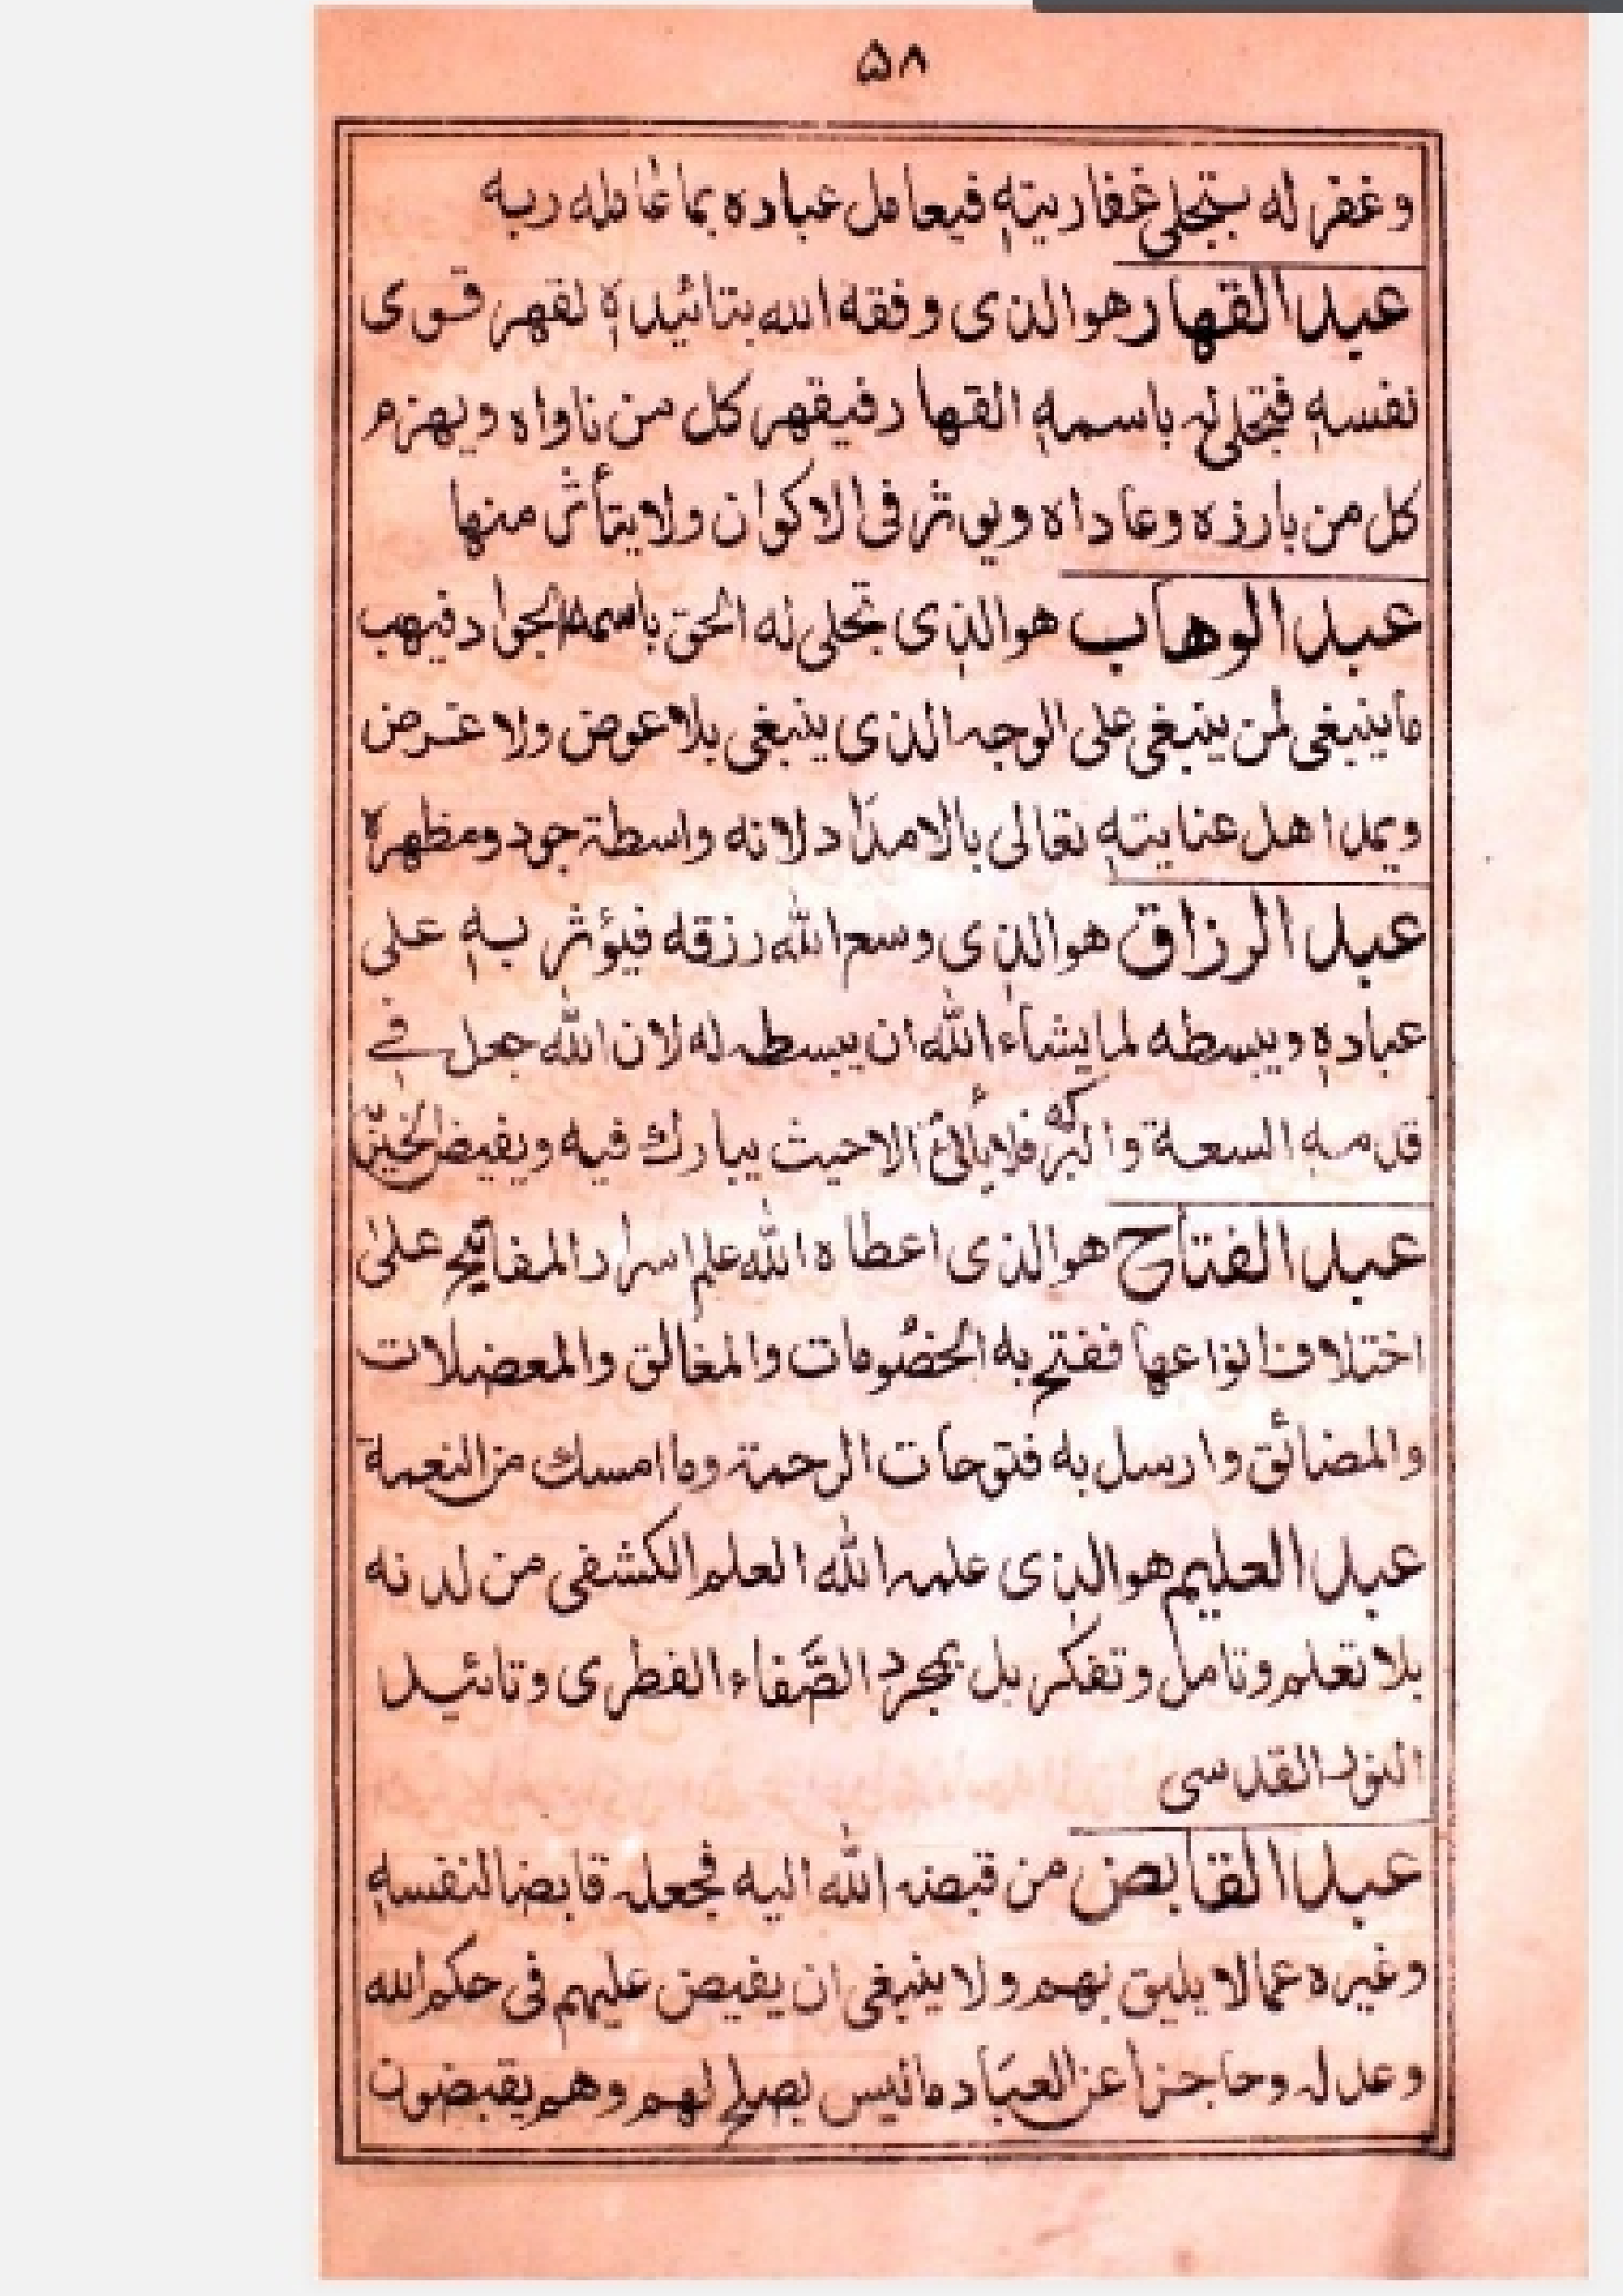 ۵۸
وغفر له بتجلی غفاریتهٖ فیعامل عباده بما عامله ربه
عبد القهار هوالذی وفقه الله بتائیدهٖ لقهر قوی
نفسهٖ فتجلی له باسمهٖ القهار فیقهر کل من ناواه ویهزم
کل من بارزه وعاداه ویوثر فی الاکوان ولا یتأثر منها
عبد الوهاب هوالذی تجلی له الحق باسمه الجواد فیهب
ماینبغی لمن ینبغی علی الوجه الذی ینبغی بلا عوض ولا غرض
ویمد اهل عنایتهٖ تعالی بالامداد لانه واسطة جود ومظهره
عبد الرزاق هوالذی وسع الله رزقه فیؤثر بهٖ علی
عبادهٖ ویبسطه لما یشاء الله ان یبسطه له لان الله جعل فی
قدمهٖ السعة والبرکة فلا یأتی الا حیث یبارك فیه ویفیض الخیر
عبد الفتاح هوالذی اعطاه الله علم اسرار المفاتیح علی
اختلاف انواعها ففتح به الخصُومات والمغالق والمعضلات
والمضائق وارسل به فتوحات الرحمة وما امسك من النعمة
عبد العلیم هوالذی علمه الله العلم الکشفی من لدنه
بلا تعلم وتامل وتفکر بل بمجرد الصَّفاء الفطری وتائید
النور القدسی
عبد القابض من قبضه الله الیه فجعله قابضا لنفسهٖ
وغیره عما لا یلیق بهم ولا ینبغی ان یفیض علیهم فی حکم الله
وعدله وحاجزاً عن العباد ما لیس یصلح لهم وهم یقبضون